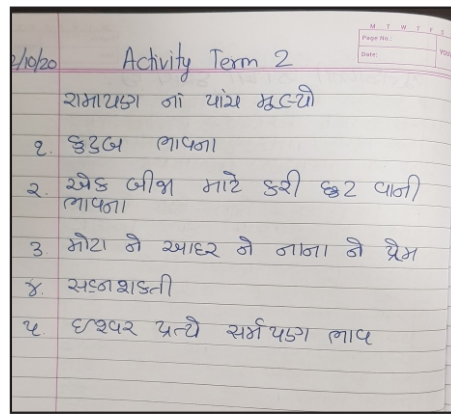 M T W T F S
Page No.:
Date:
YOU
2/10/20 Activity Term 2
રામાયણ નાં પાંચ મૂલ્યો
૧. કુટુબ ભાવના
૨. એક બીજા માટે કરી છુટ વાની
ભાવના
૩. મોટા ને આદર ને નાના ને પ્રેમ
૪. સહનશકતી
૫ ઈશ્વર પ્રત્યે સર્મપણ ભાવ